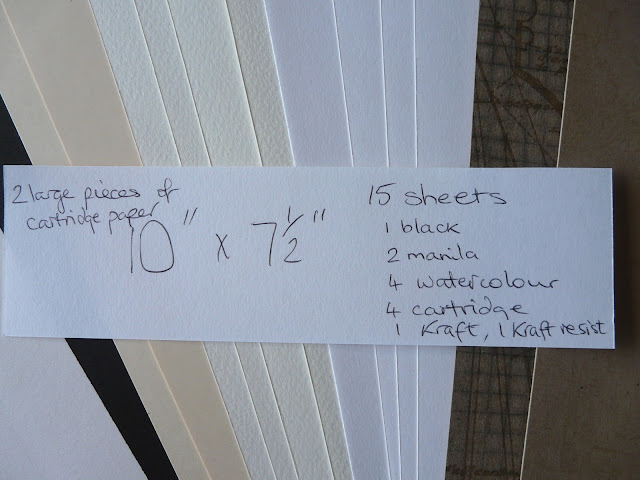 2 large pieces of
cartridge paper
10" x 7 1/2"
15 sheets
1 black
2 manila
4 watercolour
4 cartridge
1 Kraft, 1 Kraft resist